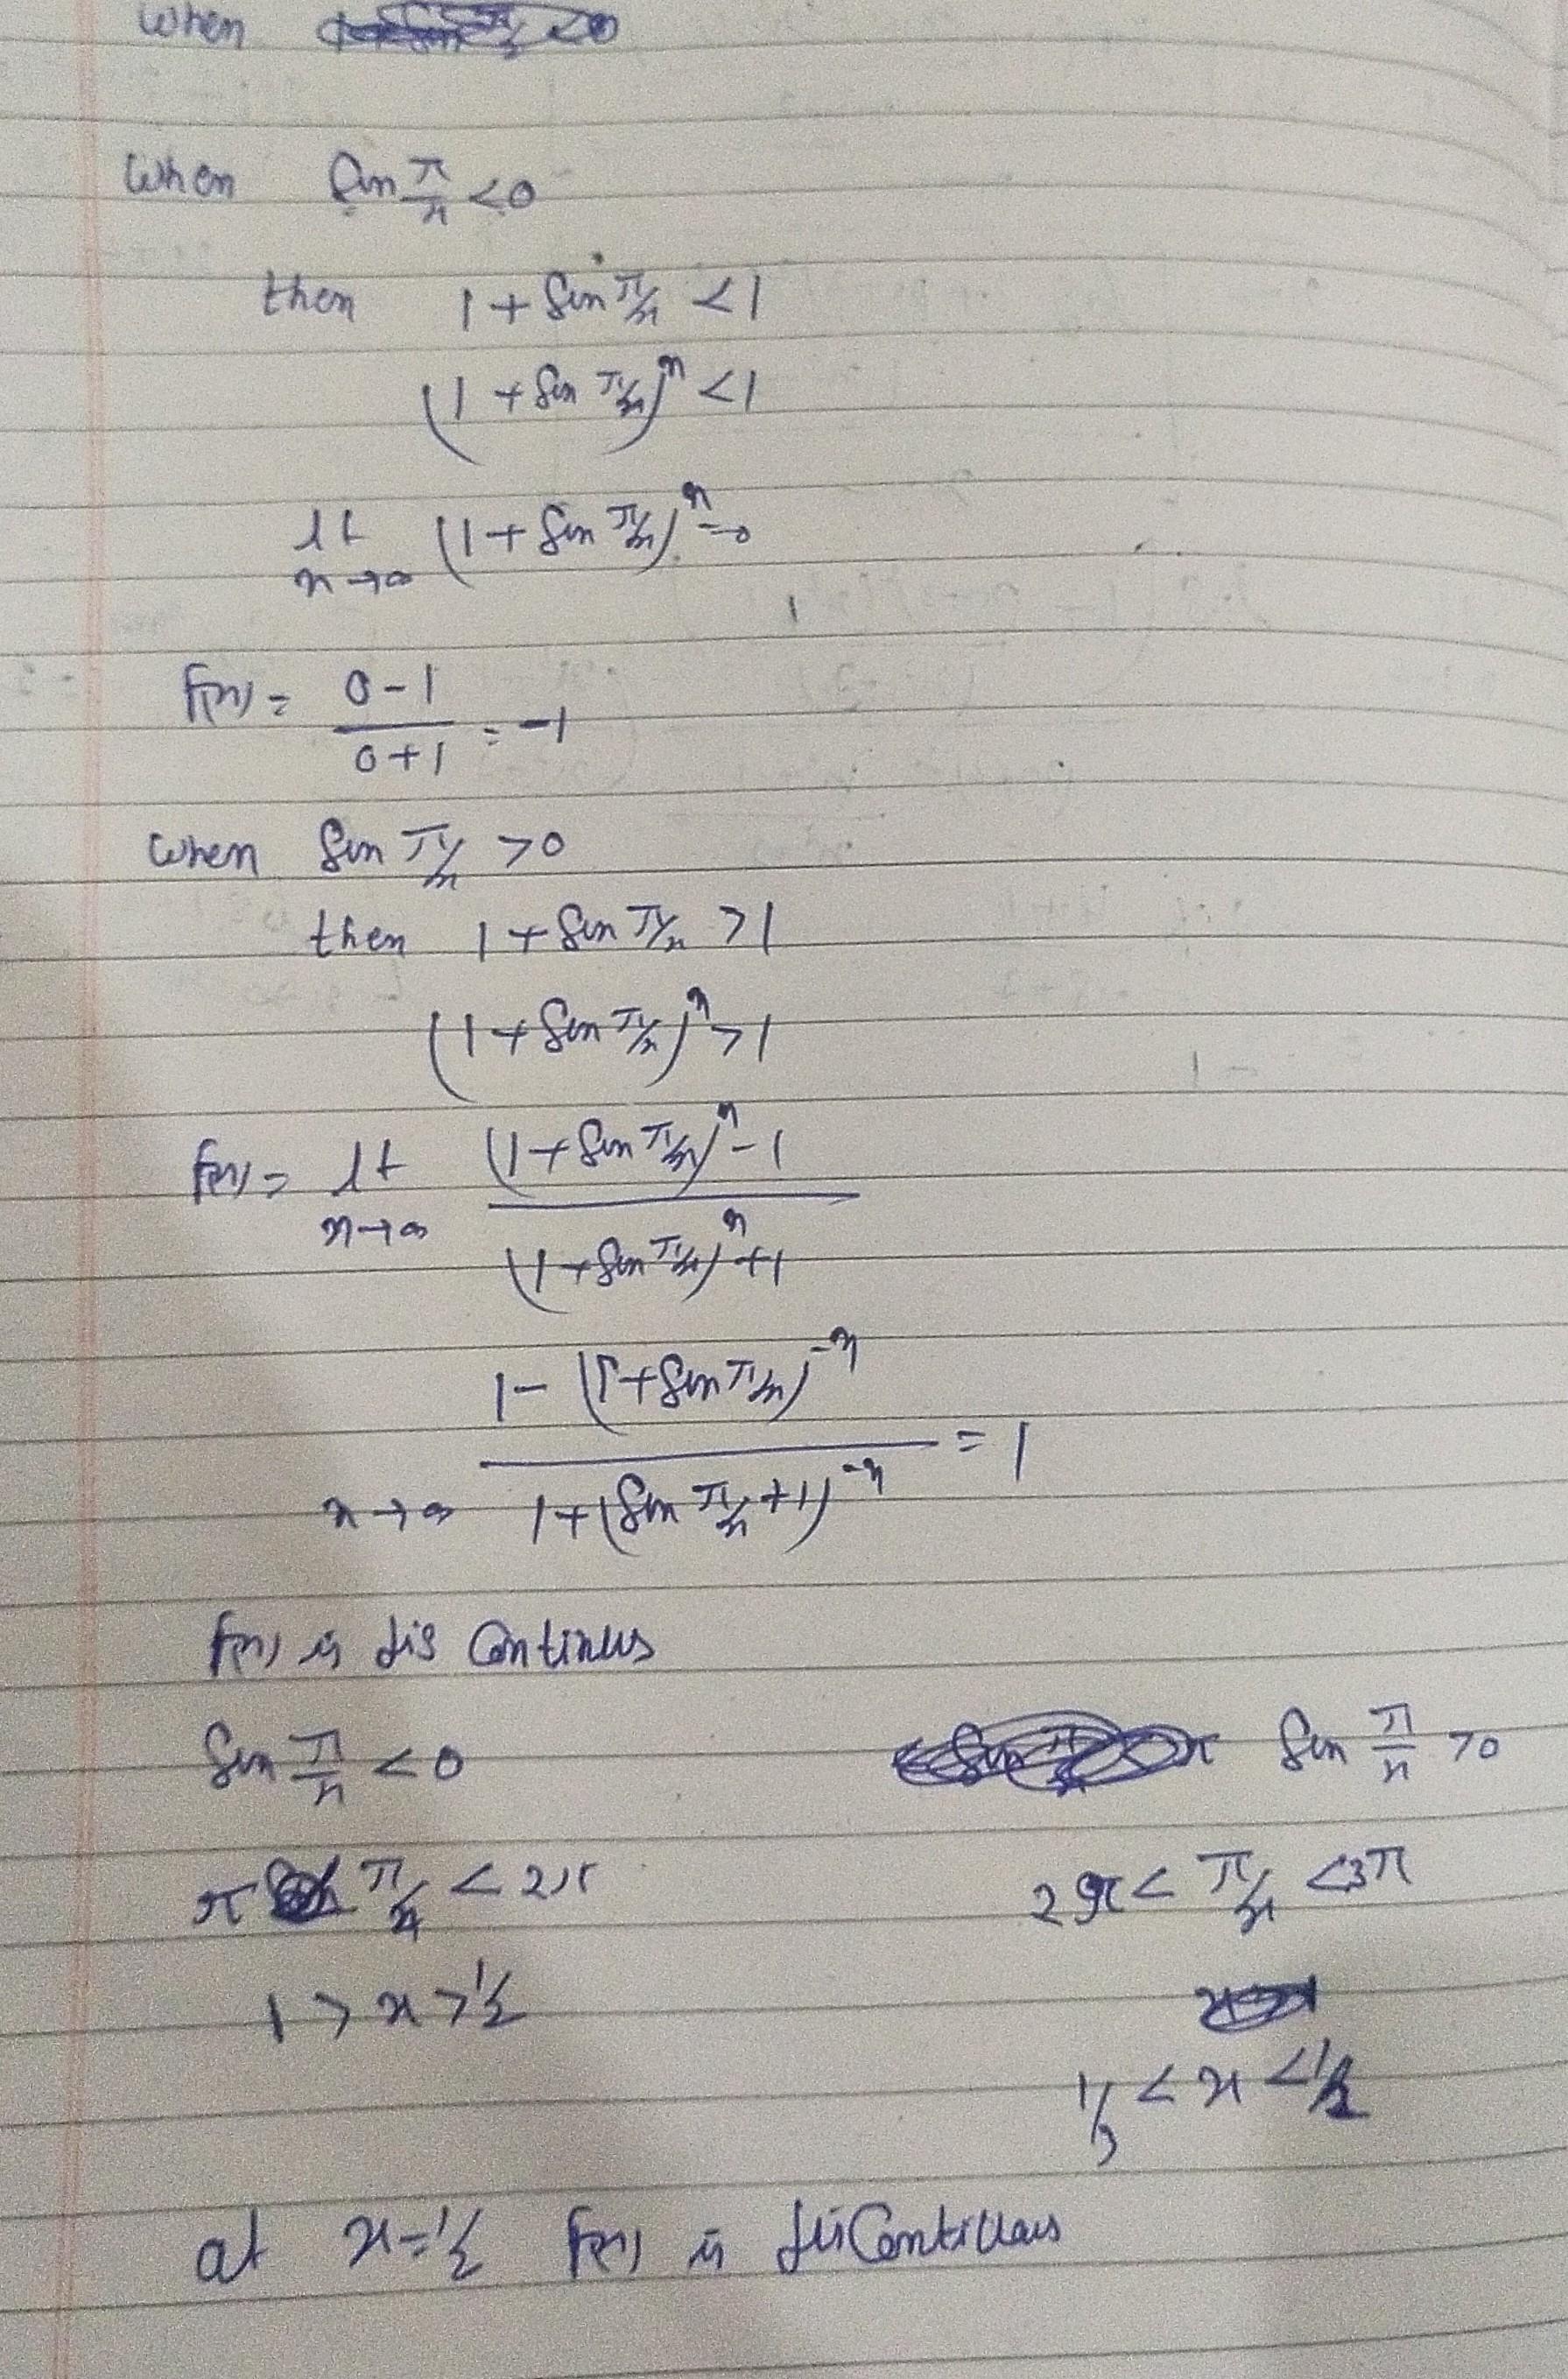 When
When sin π/x < 0
then 1 + sin π/x < 1
(1 + sin π/x)^n < 1
lt n→∞ (1 + sin π/x)^n → 0
f(x) = (0-1)/(0+1) = -1
when sin π/x > 0
then 1 + sin π/x > 1
(1 + sin π/x)^n > 1
f(x) = lt n→∞ ((1 + sin π/x)^n - 1)/((1 + sin π/x)^n + 1)
n→∞ (1 - (1 + sin π/x)^-n)/(1 + (sin π/x + 1)^-n) = 1
f(x) is dis continus
sin π/x < 0 sin π/x > 0
π π/x < 2π 2π < π/x < 3π
1 > x > 1/2
1/3 < x < 1/2
at x = 1/2 f(x) is